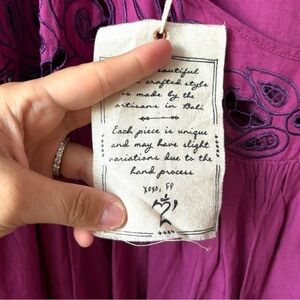 beautiful
crafted style
is made by the
artisans in Bali
Each piece is unique
and may have slight
variations due to the
hand process
xoxo, FP